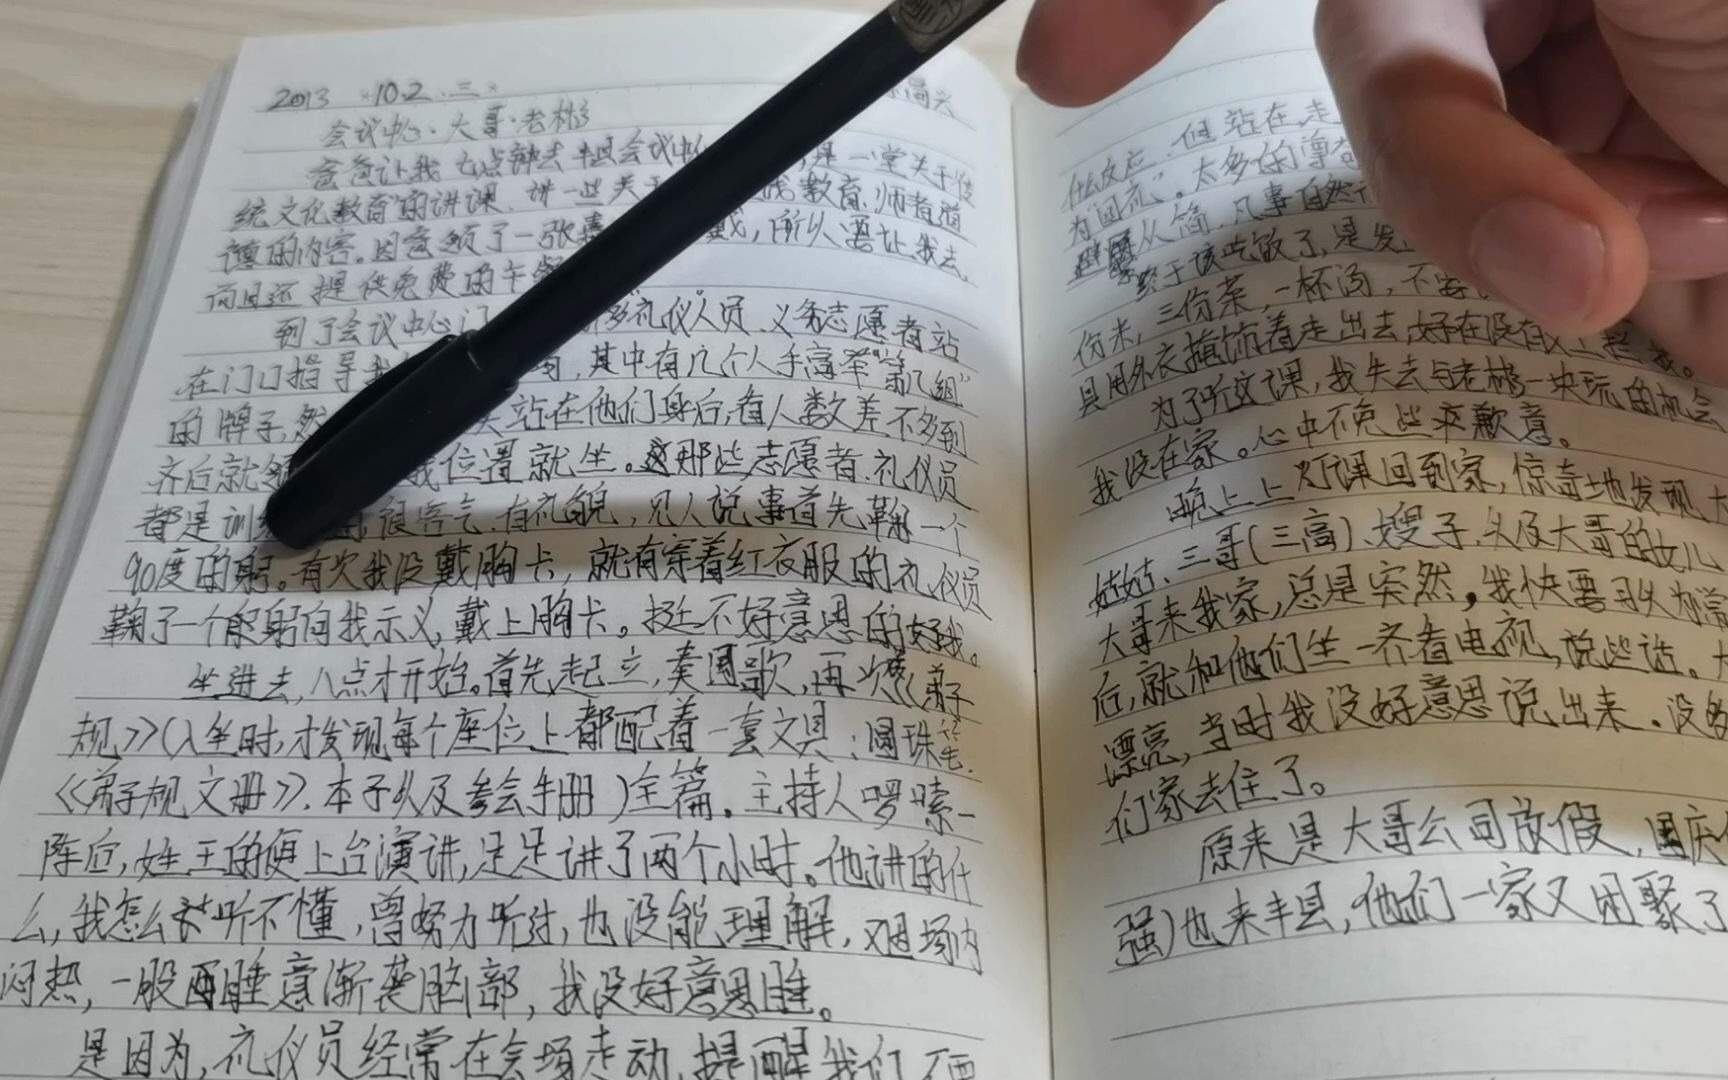 2013 10.2 三
会议中心·大哥·老彬
高兴
爸爸让我七点钟去 县会议中心 是一堂关于传
统文化教育的讲课。讲一些关于 教育、师者道
的内容。因爸领了一张 戴,所以要让我去,
而且还提供免费的午餐
到了会议中心门 礼仪人员、义务志愿者站
在门口指导我 ,其中有几个人手高举“第几组”
的牌子,然 站在他们身后,看人数差不多到
齐后就领 我位置就坐。那些志愿者、礼仪员
都是训 很客气、有礼貌,见人说事首先鞠一个
90度的躬。有次我没戴胸卡,就有穿着红衣服的礼仪员
鞠了一个 躬向我示义,戴上胸卡。挺不好意思的
坐进去,八点才开始。首先起立,奏国歌,再次《弟子
规》(入坐时,才发现每个座位上都配着一套文具:圆珠笔、
《弟子规文册》、本子以及参会手册)全篇。主持人啰嗦一
阵后,姓王的便上台演讲,足足讲了两个小时。他讲的什
么,我怎么 听不懂,曾努力听过,也没能理解,又因场内
闷热,一股 睡意渐袭脑部,我没好意思睡。
是因为,礼仪员经常在会场走动,提醒我们不要
什么反应。但站在走
为回流”。太多的
从简,凡事自然
终于该吃饭了,是发
份米,三份菜,一杯汤,不
具用外衣掩饰着走出去,好在没有
为了听这课,我失去与老彬一块玩的机会
我没在家。心中不免些来歉意。
晚上上 课回到家,惊奇地发现,大
姑姑、三哥(三高)、嫂子、以及大哥的女儿
大哥来我家,总是突然,我快要习以为常
后,就和他们坐一齐看电视,说些话。大
漂亮,当时我没好意思说出来。没
们家去住了。
原来是大哥公司放假,国庆
强)也来丰县,他们一家又团聚了